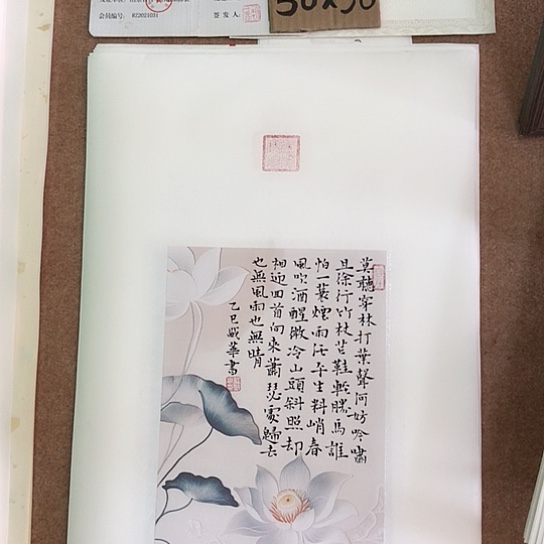 会员编号: RZ2021031 签发人:
莫聽穿林打葉聲何妨吟嘯
且徐行竹杖芒鞋輕勝馬誰
怕一蓑煙雨任平生料峭春
風吹酒醒微冷山頭斜照却
相迎回首向來蕭瑟處歸去
也無風雨也無晴
乙巳 華書